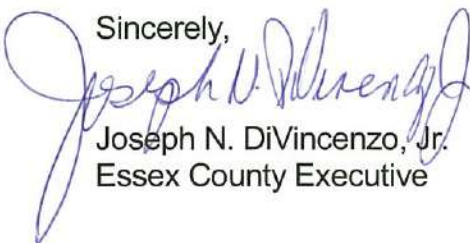 Sincerely,
Joseph N. DiVincenzo Jr
Joseph N. DiVincenzo, Jr.
Essex County Executive